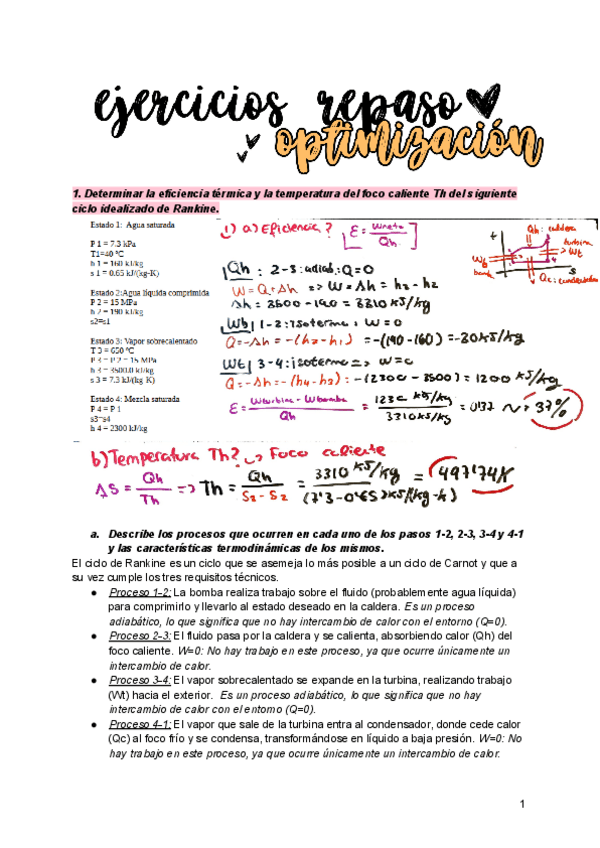 ejercicios repaso
optimización
1. Determinar la eficiencia térmica y la temperatura del foco caliente Th del siguiente
ciclo idealizado de Rankine.
Estado 1: Agua saturada
P 1 = 7.3 kPa
T1=40 °C
h 1 = 160 kJ/kg
s 1 = 0.65 kJ/(kg-K)
Estado 2:Agua líquida comprimida
P 2 = 15 MPa
h 2 = 190 kJ/kg
s2=s1
Estado 3: Vapor sobrecalentado
T 3 = 650 °C
P 3 = P 2 = 15 MPa
h 3 = 3500.0 kJ/kg
s 3 = 7.3 kJ/(kg K)
Estado 4: Mezcla saturada
P 4 = P 1
s3=s4
h 4 = 2300 kJ/kg
1) a) Eficiencia? ε = Wneto / Qh
Qh: 2-3: adiab: Q=0
W = Q+Δh => W = Δh = h3 - h2
Δh = 3500 - 190 = 3310 kJ/kg
Wb| 1-2: isoterma: W = 0
Q = -Δh = -(h2-h1) = -(190-160) = -30kJ/kg
Wt| 3-4: isoterma => W=0
Q = -Δh = -(h4-h3): -(2300 - 3500) = 1200 kJ/kg
ε = Wturbina - Wbomba / Qh = 1230 kJ/kg / 3310 kJ/kg = 0'37 ~> 37%
t
Qh: caldera
turbina
Wt
Wb
bomba
s
Qc: condensador
b) Temperatura Th? Foco caliente
ΔS = Qh / Th => Th = Qh / S2 - S2 = 3310 kJ/kg / (7'3 - 0'65) kJ/(kg-k) = 497'74K
a. Describe los procesos que ocurren en cada uno de los pasos 1-2, 2-3, 3-4 y 4-1
y las características termodinámicas de los mismos.
El ciclo de Rankine es un ciclo que se asemeja lo más posible a un ciclo de Carnot y que a
su vez cumple los tres requisitos técnicos.
● Proceso 1-2: La bomba realiza trabajo sobre el fluido (probablemente agua líquida)
para comprimirlo y llevarlo al estado deseado en la caldera. Es un proceso
adiabático, lo que significa que no hay intercambio de calor con el entorno (Q=0).
● Proceso 2-3: El fluido pasa por la caldera y se calienta, absorbiendo calor (Qh) del
foco caliente. W=0: No hay trabajo en este proceso, ya que ocurre únicamente un
intercambio de calor.
● Proceso 3-4: El vapor sobrecalentado se expande en la turbina, realizando trabajo
(Wt) hacia el exterior. Es un proceso adiabático, lo que significa que no hay
intercambio de calor con el entorno (Q=0).
● Proceso 4-1: El vapor que sale de la turbina entra al condensador, donde cede calor
(Qc) al foco frío y se condensa, transformándose en líquido a baja presión. W=0: No
hay trabajo en este proceso, ya que ocurre únicamente un intercambio de calor.
1